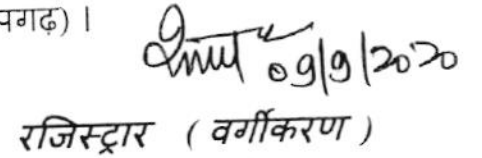 पगढ़) ।
09/9/2020
रजिस्ट्रार ( वर्गीकरण )